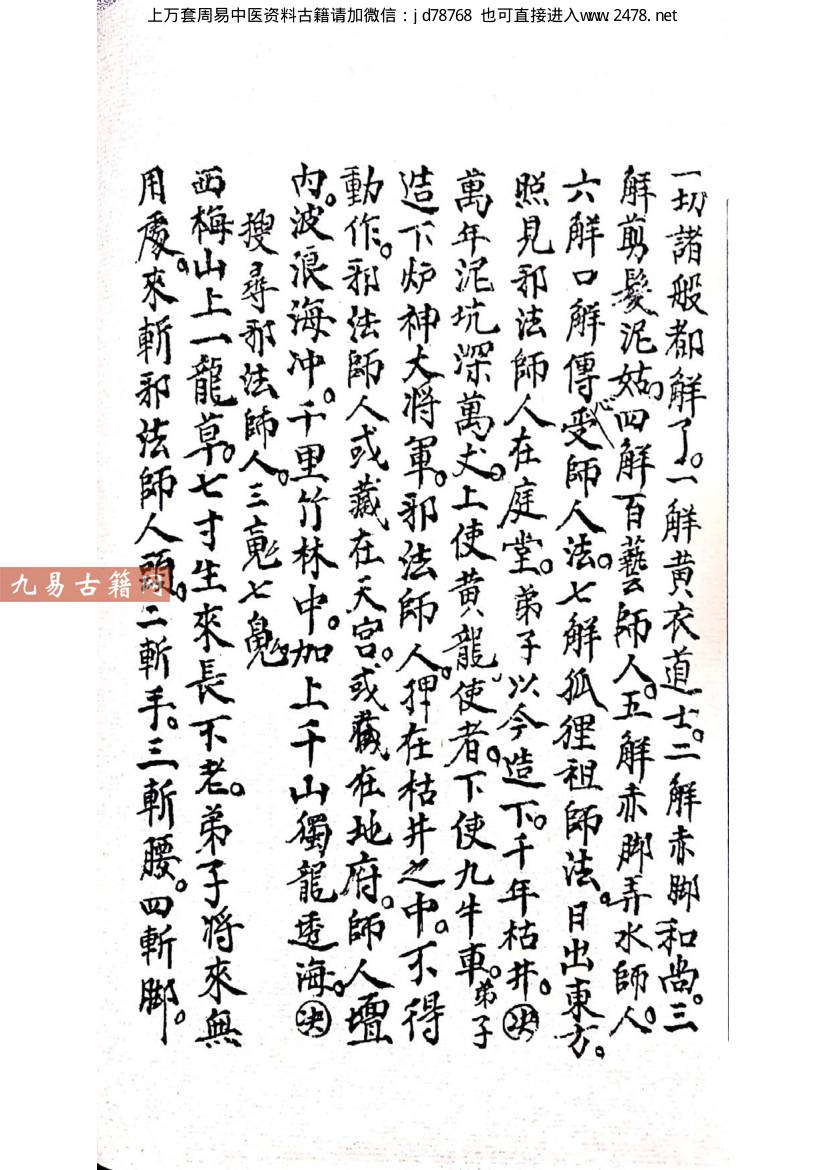 上万套周易中医资料古籍请加微信：jd78768 也可直接进入www.2478.net
一切諸般都解了。一解黄衣道士。二解赤脚和尚。三
解剪髮泥姑。四解百藝師人。五解赤脚弄水師人。
六解口解傳受心師人法。七解狐狸祖師法。日出東方。
照見邪法師人在庭堂。弟子以今造下。千年枯井。㊋
萬年泥坑深萬丈。上使黄龍使者。下使九牛車。弟子
造下炉神大将軍。邪法師人。押在枯井之中。不得
動作。邪法師人或藏在天宫。或藏在地府。師人壇
内。波浪海冲。千里竹林中。加上千山獨龍透海。
搜尋邪法師人。三魂七魄
西梅山上一龍草。七寸生來長不老。弟子将來無
用處。來斬邪法師人頭。二斬手。三斬腰。四斬脚。
九易古籍网